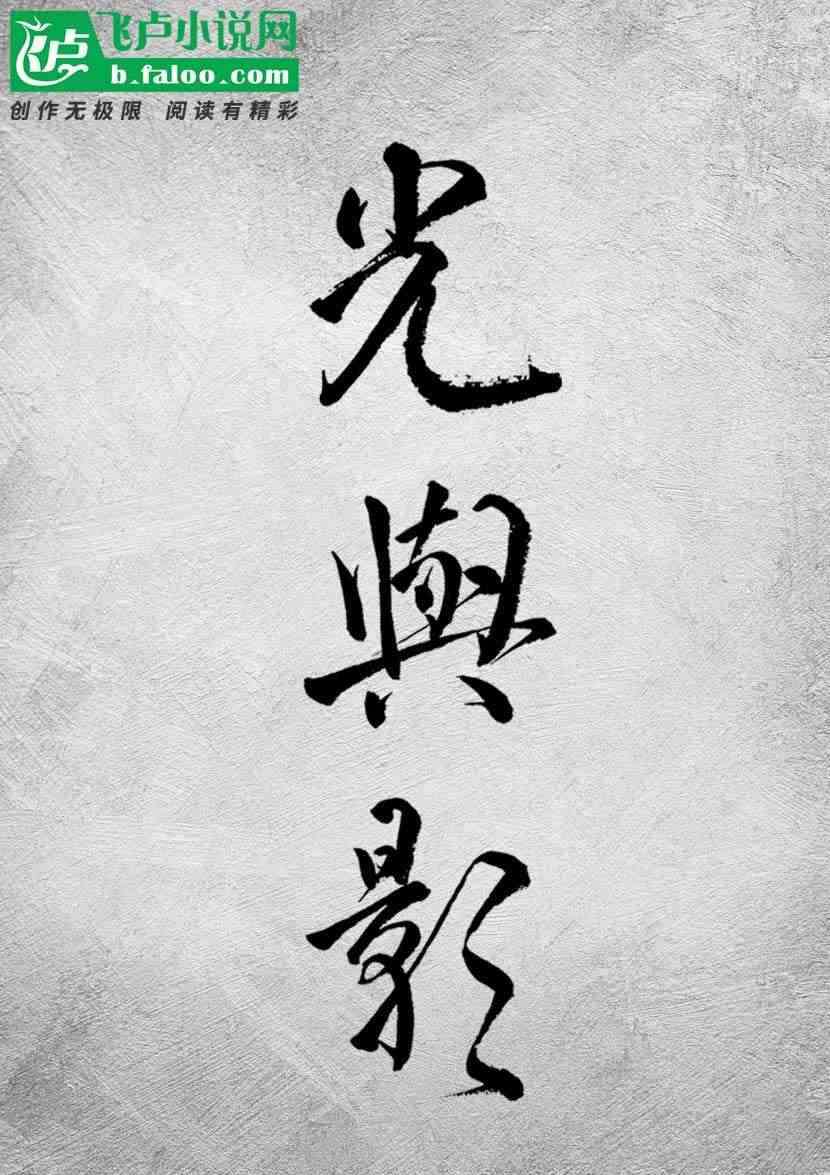 飞卢小说网
b.faloo.com
创作无极限 阅读有精彩
光與影